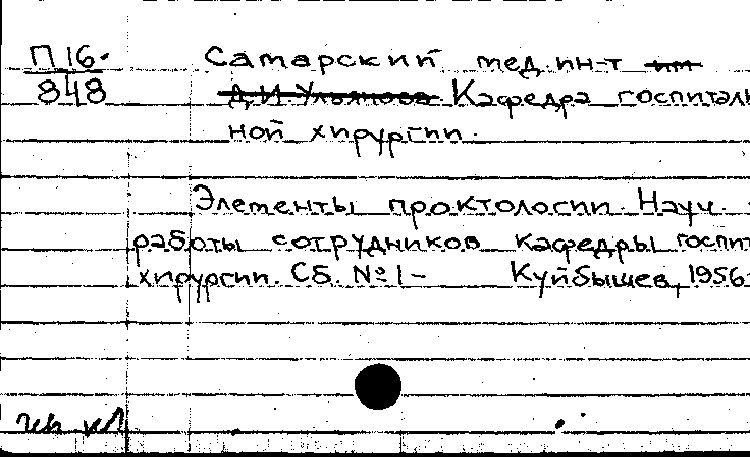 П16.
848
Самарский мед. ин-т им
Д.И. Ульянова. Кафедра госпиталь
ной хирургии.
Элементы проктологии. Науч.
работы сотрудников кафедры госпит
хирургии. Сб. №1 – Куйбышев, 1956-